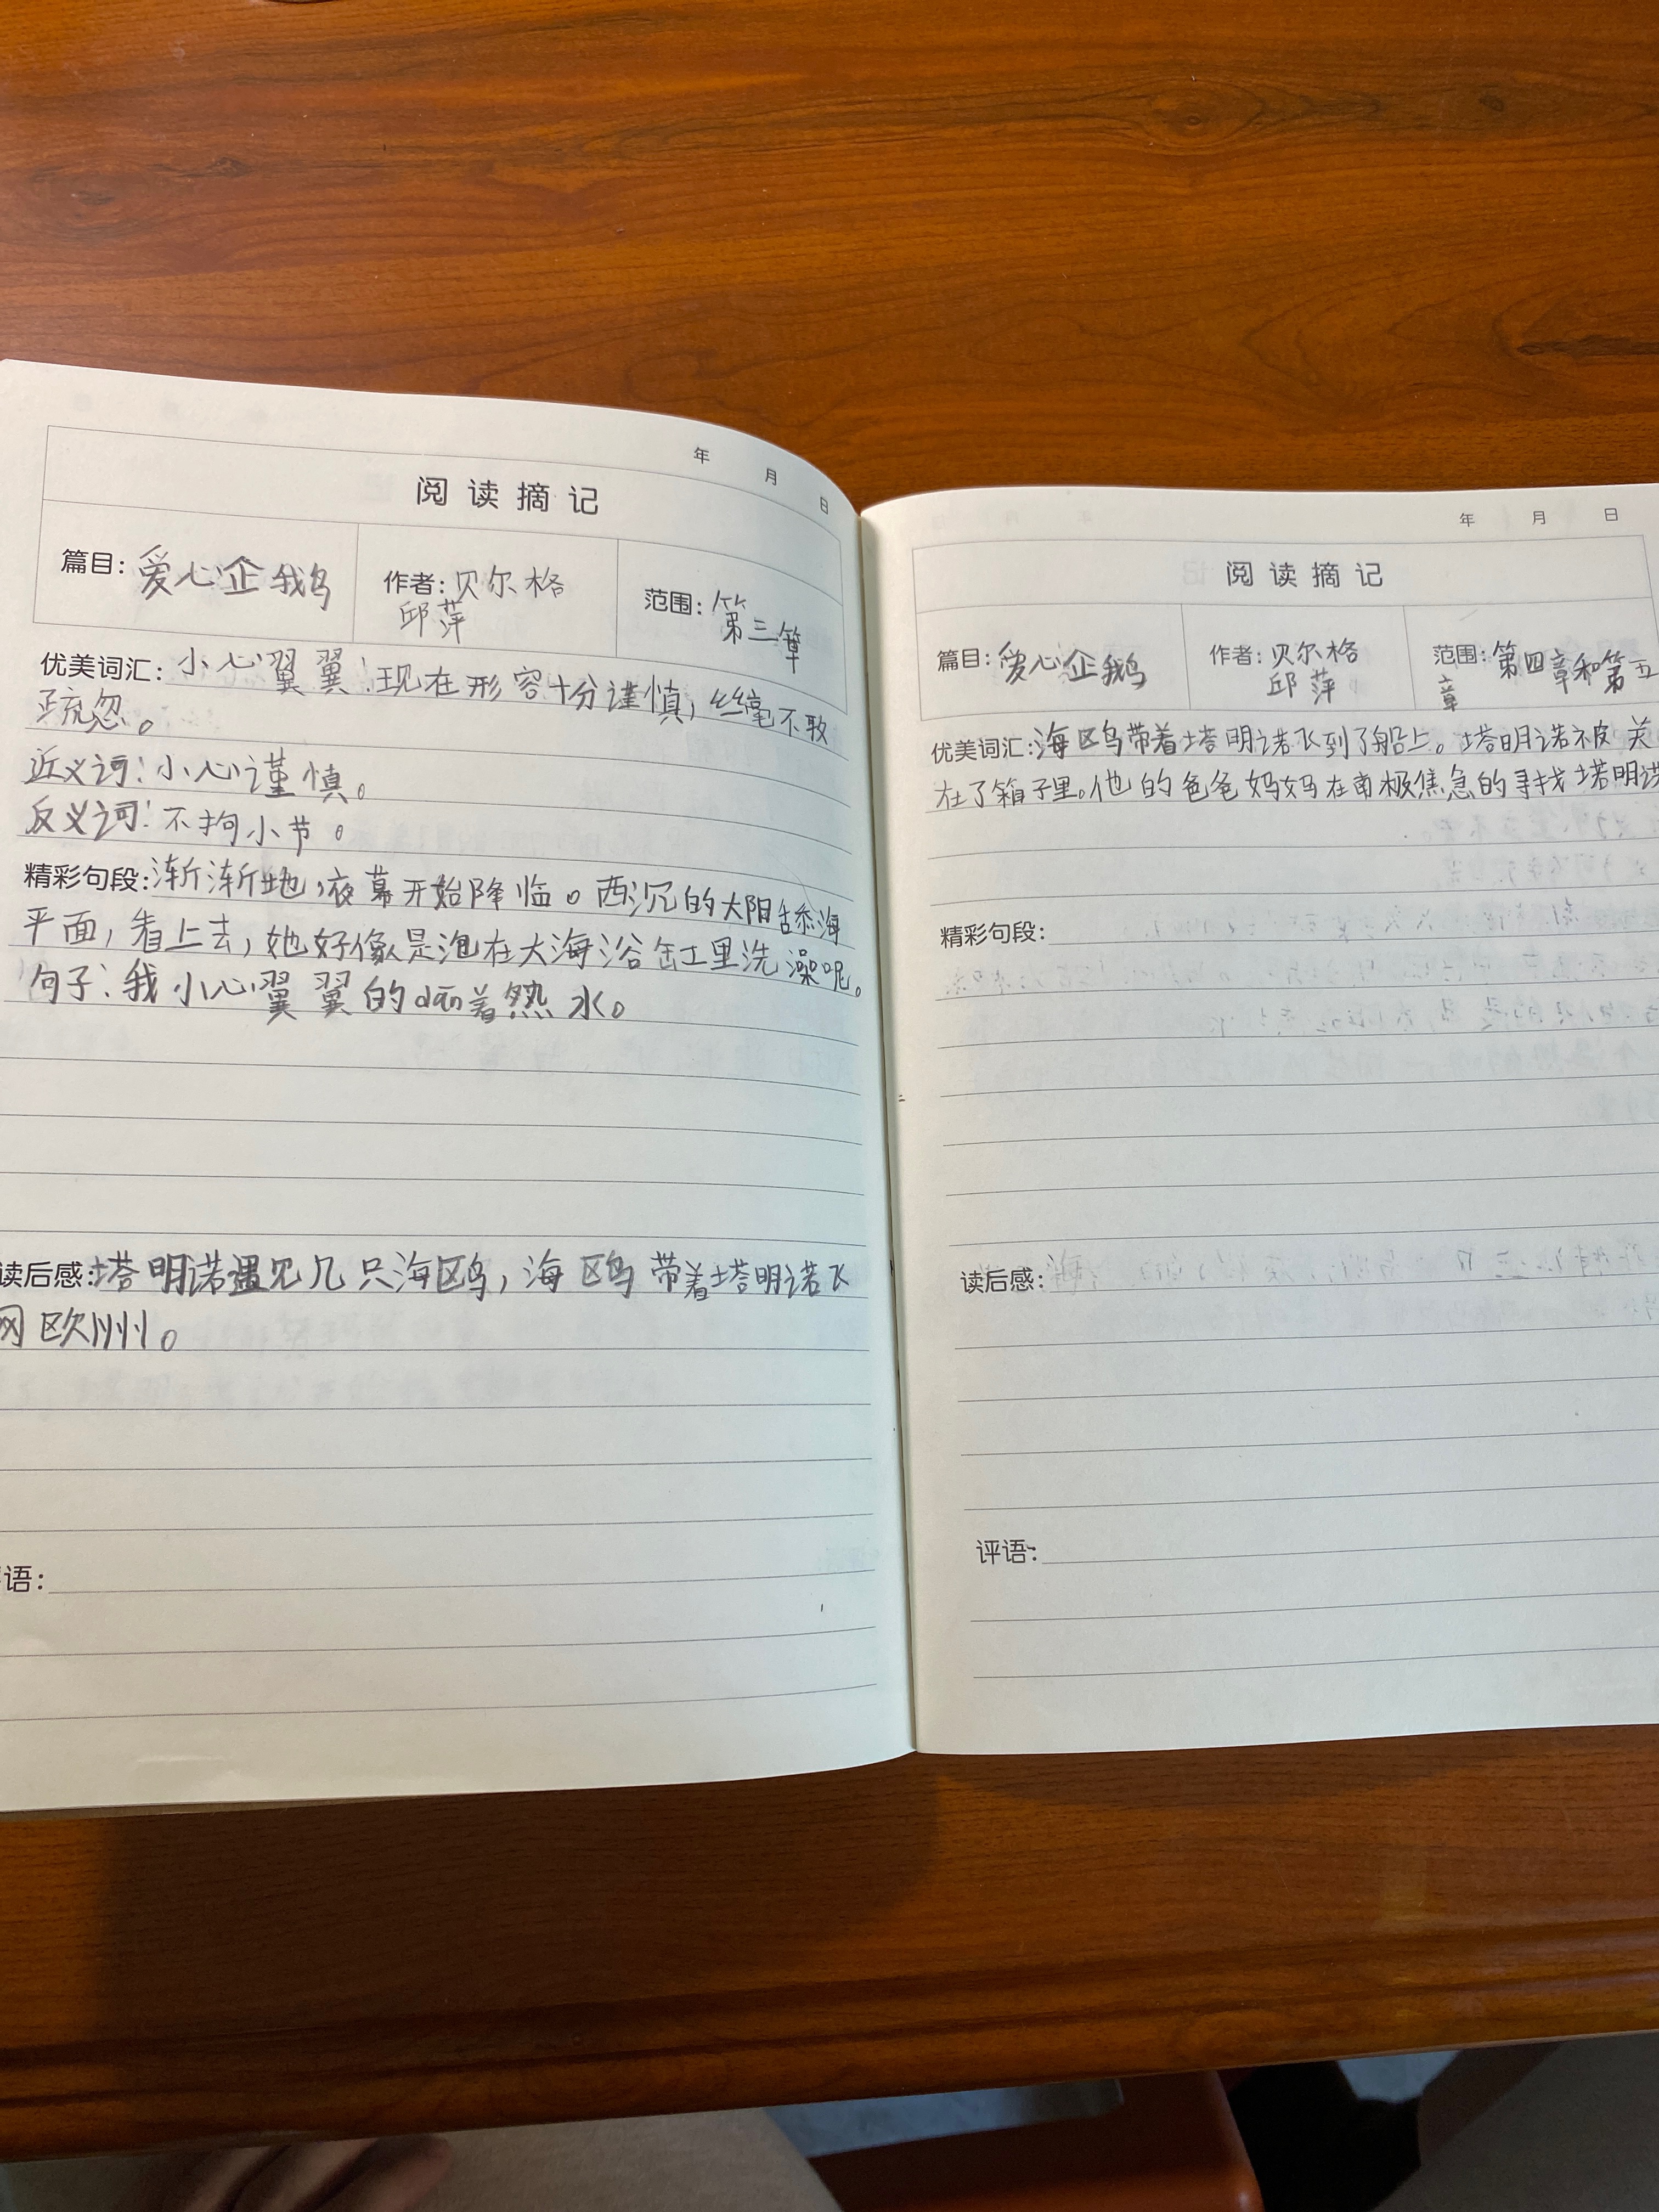 年 月 日
阅读摘记
篇目：爱心企鹅
作者：贝尔格
邱萍
范围：第三章
优美词汇：小心翼翼：现在形容十分谨慎，丝毫不敢
疏忽。
近义词：小心谨慎。
反义词：不拘小节。
精彩句段：渐渐地，夜幕开始降临。西沉的太阳舔海
平面，看上去，她好像是泡在大海浴缸里洗澡呢。
句子：我小心翼翼的duān着热水。
读后感：塔明诺遇见几只海鸥，海鸥带着塔明诺飞
网欧洲。
语：
年 月 日
阅读摘记
篇目：爱心企鹅
作者：贝尔格
邱萍
范围：第四章和第五
章
优美词汇：海鸥带着塔明诺飞到了船上。塔明诺被关
在了箱子里。他的爸爸妈妈在南极焦急的寻找塔明诺
精彩句段：
读后感：
评语：